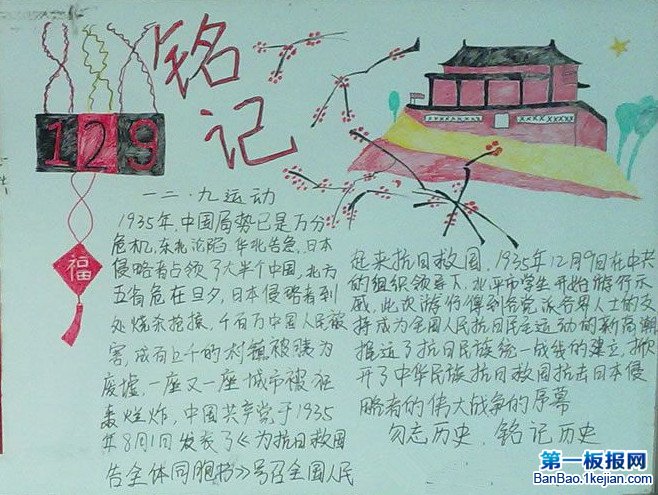 铭
记
129
福
一二·九运动
1935年,中国局势已是万分
危机,东北沦陷 华北告急,日本
侵略者占领了大半个中国,北方
五省危在旦夕,日本侵略者到
处烧杀抢掠,千百万中国人民被
害,成百上千的村镇被残为
废墟,一座又一座城市被狂
轰烂炸,中国共产党于1935
年8月1日发表了《为抗日救国
告全体同胞书》号召全国人民
起来抗日救国,1935年12月9日在中共
的组织领导下,北平市学生开始游行示
威,此次游行得到各党派各界人士的支
持成为全国人民抗日民主运动的新高潮
推迟了抗日民族统一战线的建立,掀
开了中华民族抗日救国抗击日本侵
略者的伟大战争的序幕
勿忘历史,铭记历史
第一板报网
BanBao.1kejian.com